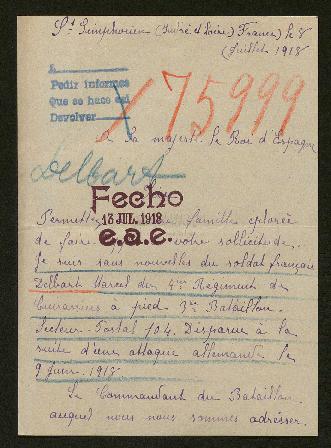 St Symphorien (Indre et Loire) (France) le 8
Juillet 1918
Pedir informes
Que se hace así
Devolver
75999
A Sa majesté le Roi d'Espagne
Delbart
Fecho
13 JUL. 1918
e.a.e.
Permettez famille éplorée
de faire votre sollicitude.
Je suis sans nouvelles du soldat français
Delbart Marcel du 4me Régiment de
Cuirassiers à pied 3me Bataillon.
Secteur-Postal 104. Disparue à la
suite d'une attaque allemande le
9 Juin. 1918
Le Commandant du Bataillon
auquel nous nous sommes adresser.